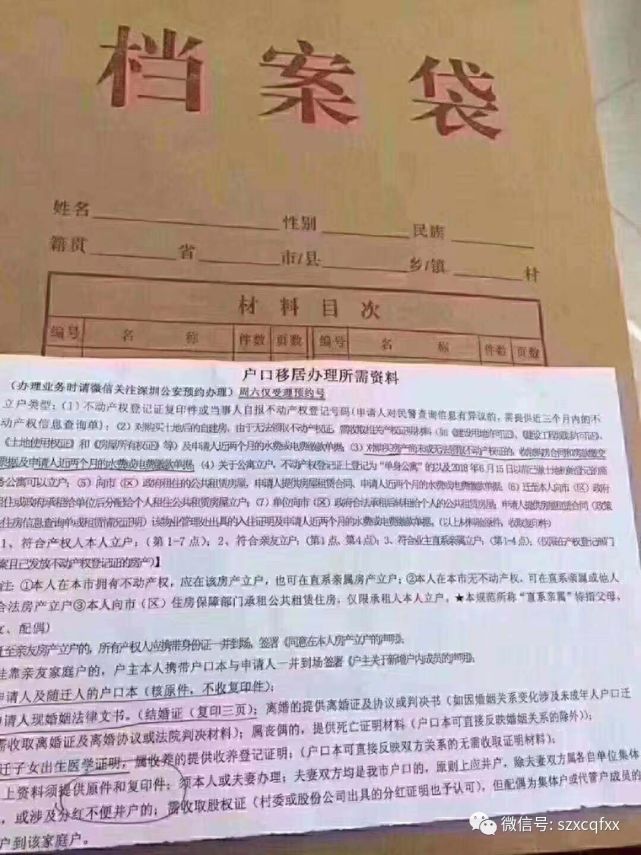 档案袋
姓名 性别 民族
籍贯 省 市/县 乡/镇 村
材料目次
编号 名称 件数 页数 编号 名称 件数 页数
户口移居办理所需资料
(办理业务时请微信关注深圳公安预约办理) 周六仅受理预约号
立户类型: (1) 不动产权登记证复印件或当事人自报不动产权登记号码(申请人对民警查询信息有异议的, 需提供近三个月内的不
动产权信息查询单); (2) 对购买土地后的自建房, 由于无法领取不动产权证, 需收取相关产权证明材料 (如《建设用地许可证》、《建设工程规划许可证》、
《土地使用权证》和《房屋所有权证》等) 及申请人近两个月的水费或电费缴款单据; (3)
票据及申请人近两个月的水费或电费缴款单据; (4) 关于公寓立户, 不动产权登记上登记为“单身公寓”的以及2018年6月15日以前已
公寓可以立户; (5) 向市 (区) 政府租住的公共租赁房屋, 申请人提供房屋租赁合同、申请人近两个月的水费或电费缴款单据; (6) 迁至本人向市 (区) 政府
住或政府承租给单位后分配给个人租住公共租赁房屋立户; (7) 单位向市 (区) 政府合法承租后转租给个人的公共租赁房屋, 申请人提供房屋租赁合同
住房信息查询单或租赁情况证明) 该物业管理处出具的入住证明及申请人近两个月的水费或电费缴款单据。
1、符合产权人本人立户: (第1-7点); 2、符合亲友立户: (第1点, 第4点); 3、符合业主直系亲属立户: (第1-4点);
案且已发放不动产权登记证的房产)】
注: ①本人在本市拥有不动产, 应在该房产立户, 也可在直系亲属房产立户; ②本人在本市无不动产权, 可在直系亲属或他人
合法房产立户③本人向市 (区) 住房保障部门承租公共租赁住房, 仅限承租人本人立户。★本规范所称“直系亲属”特指父母、
女、配偶)
迁至亲友房产立户的, 所有产权人应携带身份证一并到场, 签署《同意在本人房产立户的声明》;
挂靠亲友家庭户的, 户主本人携带户口本与申请人一并到场签署《户主关于新增户内成员的声明》;
申请人及随迁人的户口本 (核原件, 不收复印件);
申请人现婚姻法律文书。(结婚证 (复印三页); 离婚的提供离婚证及协议或判决书 (如因婚姻关系变化涉及未成年人户口迁
需收取离婚证及离婚协议或法院判决材料); 属丧偶的, 提供死亡证明材料 (户口本可直接反映婚姻关系的除外));
迁子女出生医学证明, 属收养的提供收养登记证明; (户口本可直接反映双方关系的无需收取证明材料);
上资料须提供原件和复印件; 须本人或夫妻办理; 夫妻双方均是我市户口的, 原则上应并户, 除夫妻双方属各自单位集体
, 或涉及分红不便并户的; 需收取股权证 (村委或股份公司出具的分红证明也予认可), 但配偶为集体户或代管户成员的
户到该家庭户。
微信号: szxcqfxx